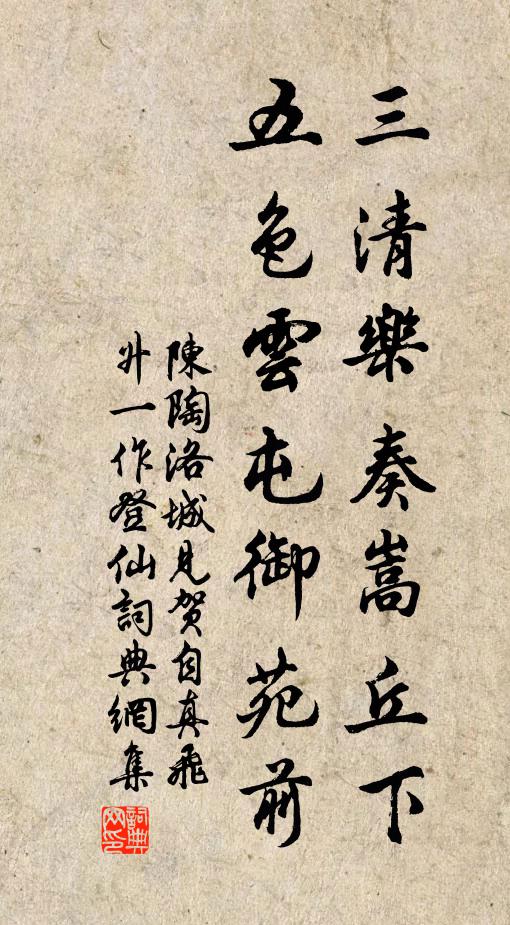 三清樂奏嵩丘下
五色雲屯御苑前
陳陶洛城見賀自真飛
升一作登仙詞典網集
詞典网印